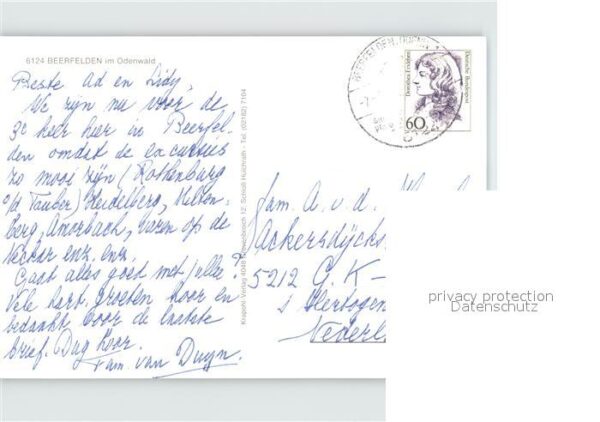 6124 BEERFELDEN im Odenwald
Beste Ad en Lidy,
We zijn nu voor de
3e keer hier in Beerfel-
den omdat de excursies
zo mooi zijn (Rothenburg
o/d Tauber) Heidelberg, Milten-
berg, Amorbach, varen op de
Neckar enz. enz.
Gaat alles goed met jullie?
Vele hart. groeten hoor en
bedankt voor de laatste
brief. Dag hoor.
Fam. van Duyn.
Krapohl-Verlag 4048 Grevenbroich 12, Schloß Hülchrath · Tel. (02182) 7104
Dorothea Erxleben
Deutsche Bundespost
60
fam. A. v. d.
Ackersdijcks
5212 G. K-
's Hertogen
Nederl
privacy protection
Datenschutz